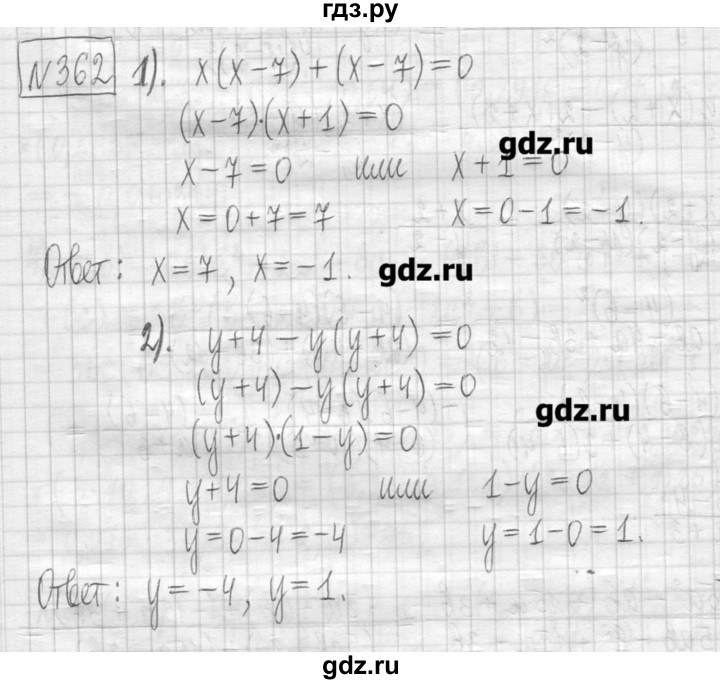 гдз.ру
№362 1). x(x-7)+(x-7)=0
(x-7)·(x+1)=0
gdz.ru
x-7=0 или x+1=0
x=0+7=7 x=0-1=-1.
Ответ: x=7, x=-1.
gdz.ru
2). y+4-y(y+4)=0
(y+4)-y(y+4)=0
gdz.ru
(y+4)·(1-y)=0
y+4=0 или 1-y=0
y=0-4=-4 y=1-0=1.
Ответ: y=-4, y=1.
gdz.ru